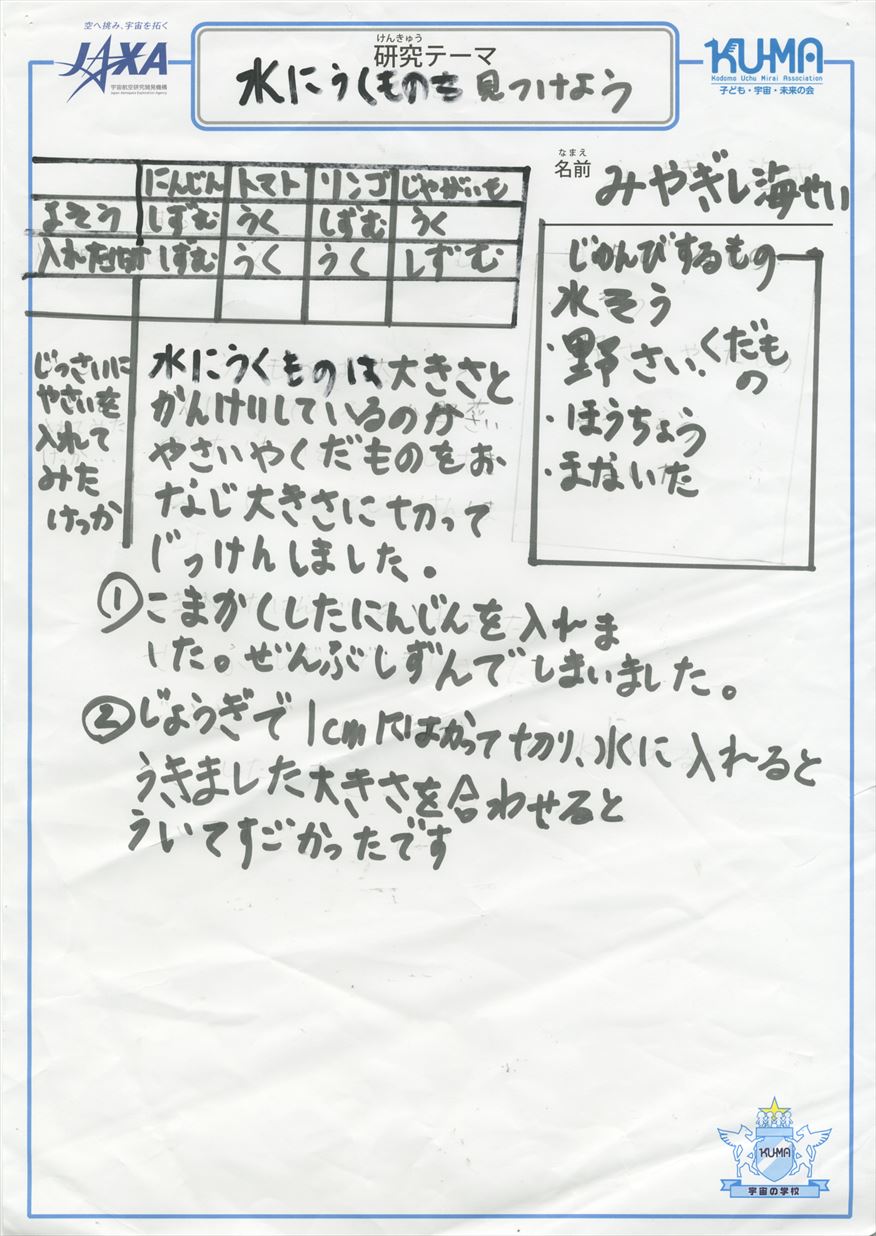 空へ挑み、宇宙を拓く
JAXA
宇宙航空研究開発機構
Japan Aerospace Exploration Agency
けんきゅう
研究テーマ
水にうくものを見つけよう
KU-MA
Kodomo Uchu Mirai Association
子ども・宇宙・未来の会
なまえ
名前 みやぎし海せい
にんじん トマト リンゴ じゃがいも
よそう しずむ うく しずむ うく
入れた時 しずむ うく うく しずむ
じゅんびするもの
水そう
・野さい、くだもの
・ほうちょう
・まないた
じっさいに
やさいを
入れて
みた
けっか
水にうくものは大きさと
かんけいしているのか
やさいやくだものをお
なじ大きさに切って
じっけんしました。
①こまかくしたにんじんを入れま
した。ぜんぶしずんでしまいました。
②じょうぎで1cmにはかって切り、水に入れると
うきました大きさを合わせると
ういてすごかったです
KU-MA
宇宙の学校